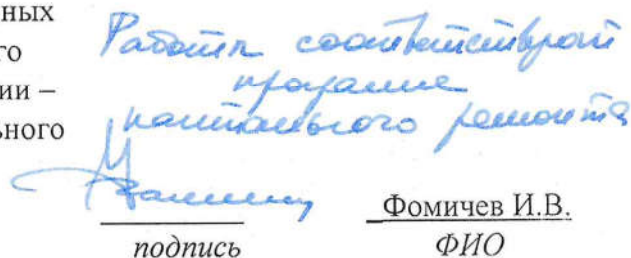 нных
го
ии –
ьного
Работы соответствуют
программе
капитального ремонта
Фомичев И.В.
подпись ФИО